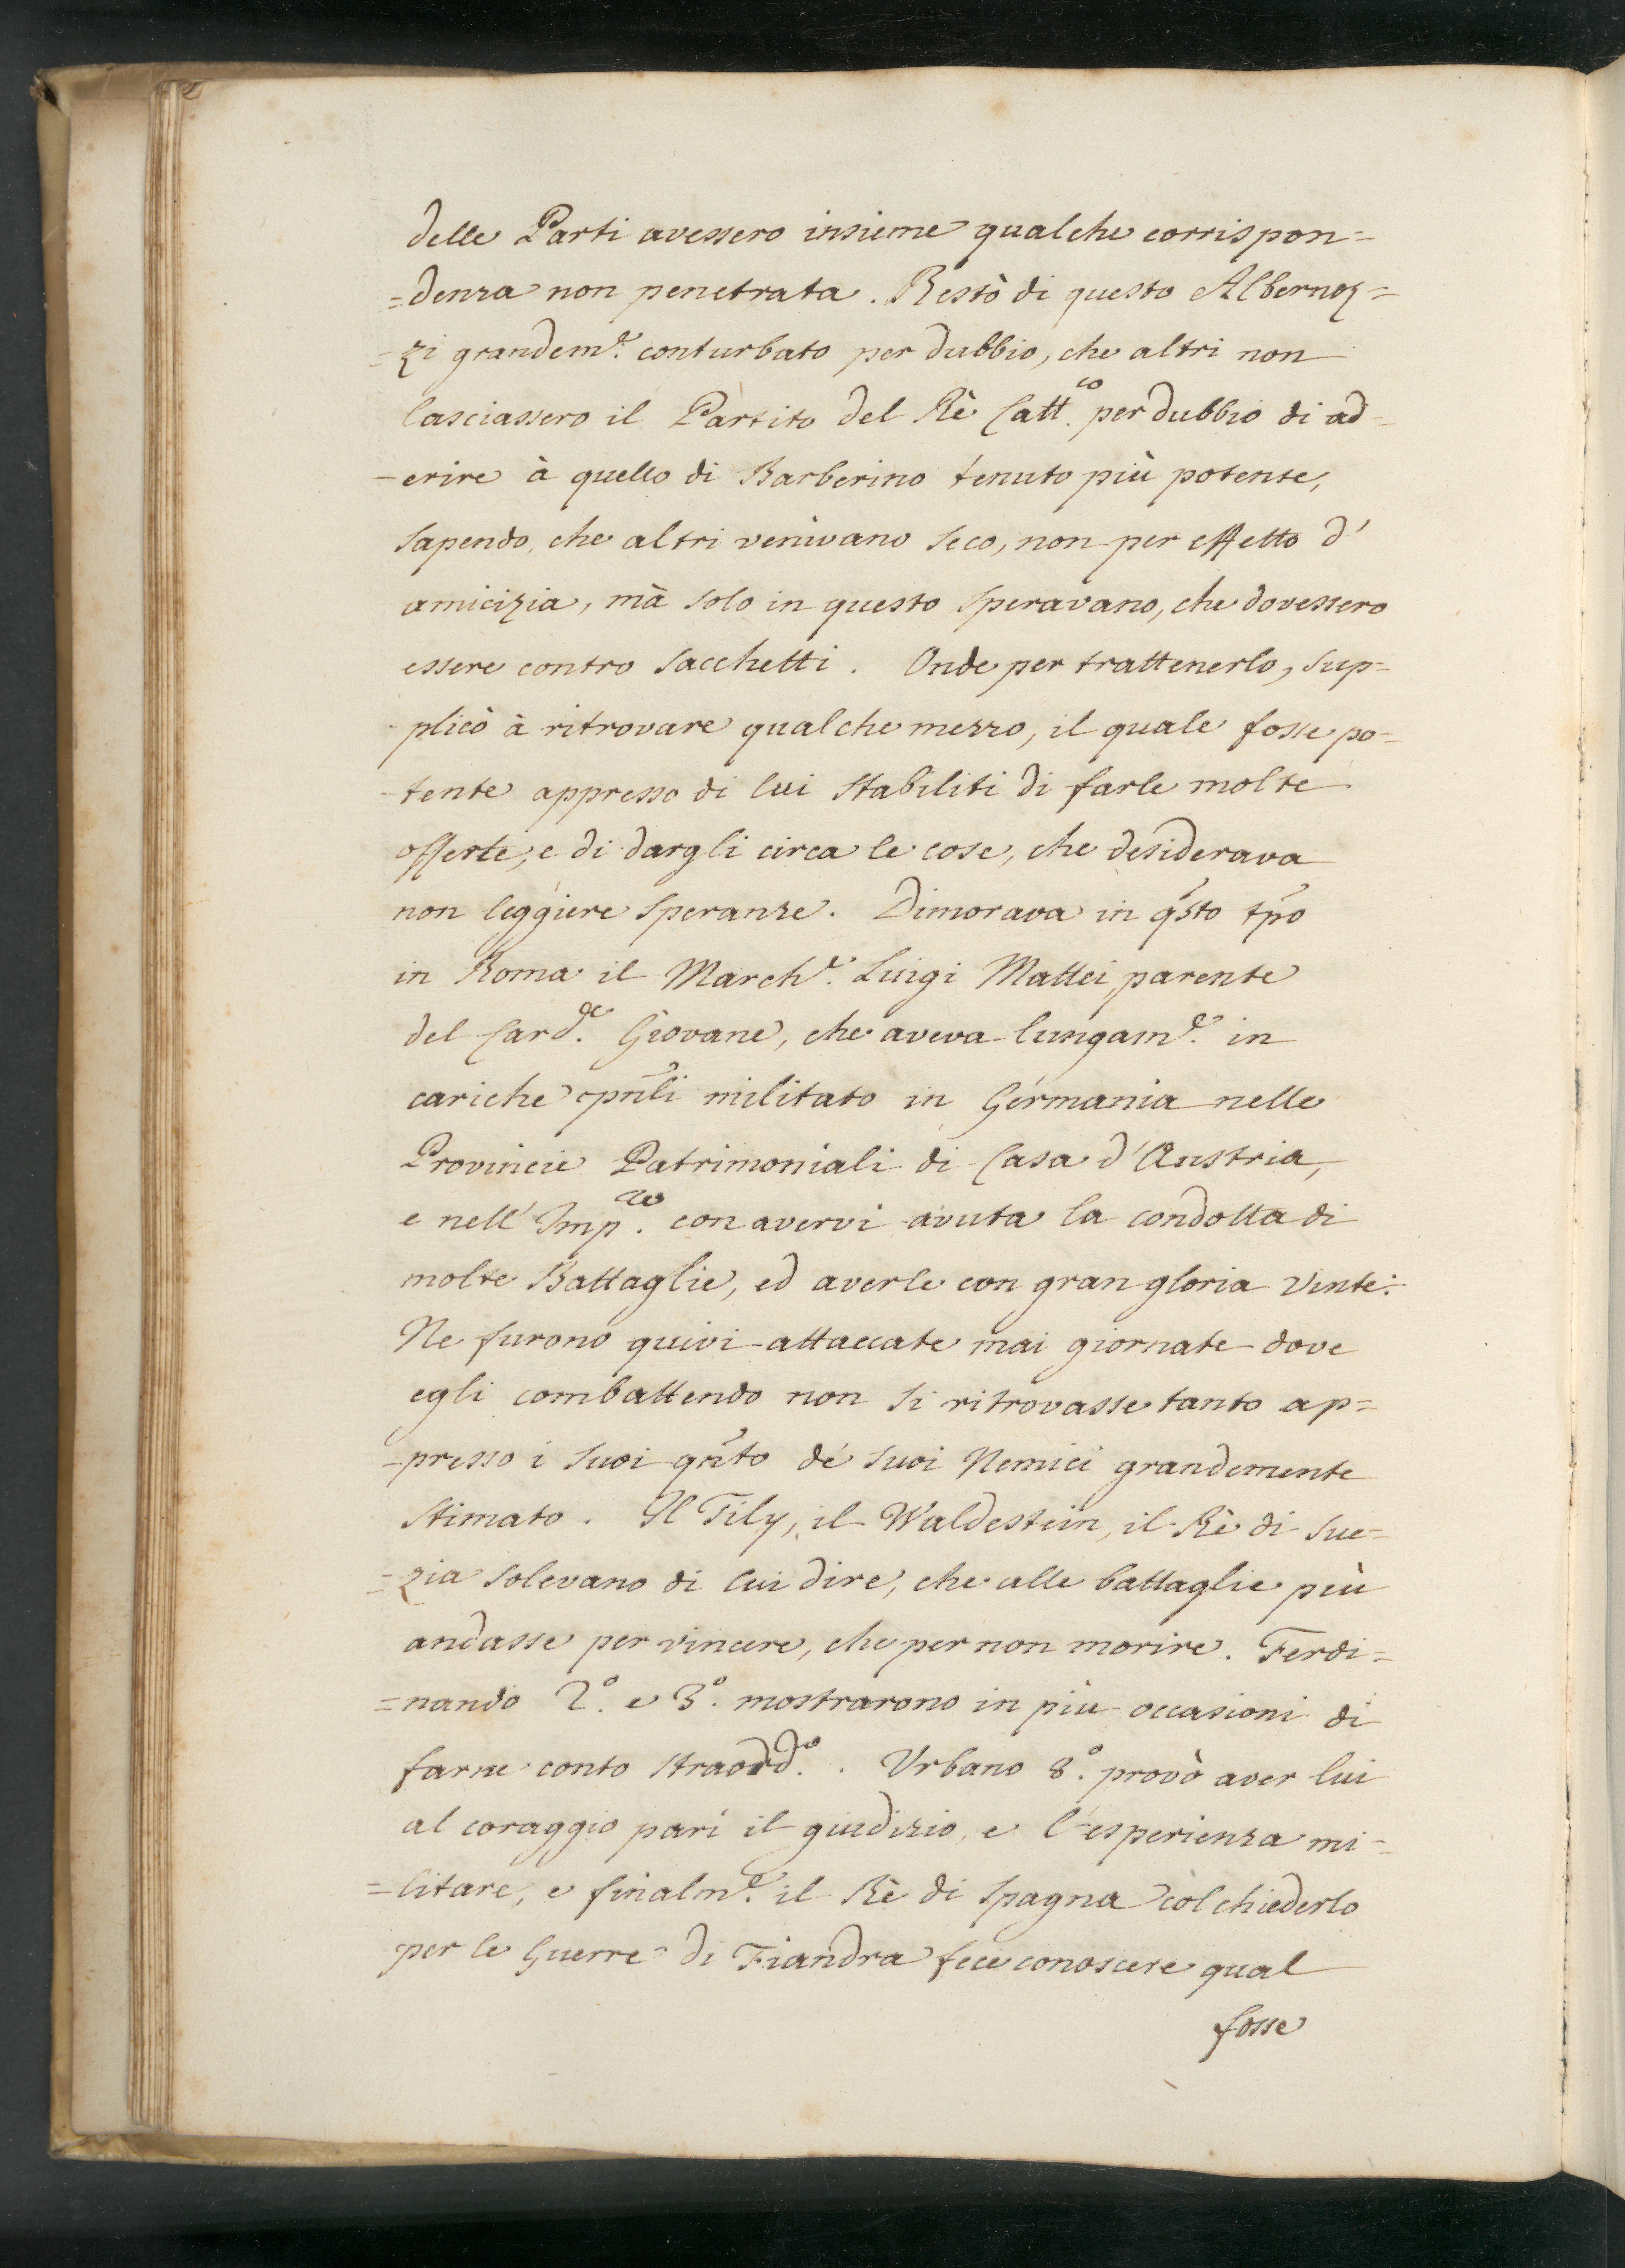 delle Parti avessero insieme qualche corrispon=
=denza non penetrata. Restò di questo Albernoz=
=zi grandem.e conturbato per dubbio, che altri non
lasciassero il Partito del Rè Catt.co per dubbio di ad-
-erire à quello di Barberino tenuto più potente,
sapendo, che altri venivano seco, non per effetto d'
amicizia, mà solo in questo speravano, che dovessero
essere contro Sacchetti. Onde per trattenerlo, sup=
-plicò à ritrovare qualche mezzo, il quale fosse po=
-tente appresso di lui stabiliti di farle molte
offerte, e di dargli circa le cose, che desiderava
non leggiere speranze. Dimorava in q̃sto tp̃o
in Roma il March.e Luigi Mattei, parente
del Card.le Giovane, che aveva lungam.e in
cariche pñli militato in Germania nelle
Provincie Patrimoniali di Casa d'Austria,
e nell'Imp.ro con avervi avuta la condotta di
molte Battaglie, ed averle con gran gloria vinte:
Ne furono quivi attaccate mai giornate dove
egli combattendo non si ritrovasse tanto ap=
-presso i suoi qñto de' suoi Nemici grandemente
stimato. Il Tily, il Waldestein, il Rè di Sue=
=zia solevano di lui dire, che alle battaglie più
andasse per vincere, che per non morire. Ferdi=
=nando 2.o e 3.o mostrarono in più occasioni di
farne conto straord.o. Urbano 8.o provò aver lui
al coraggio pari il giudizio, e l'esperienza mi=
=litare, e finalm.e il Rè di Spagna col chiederlo
per le Guerre di Fiandra fece conoscere qual
fosse